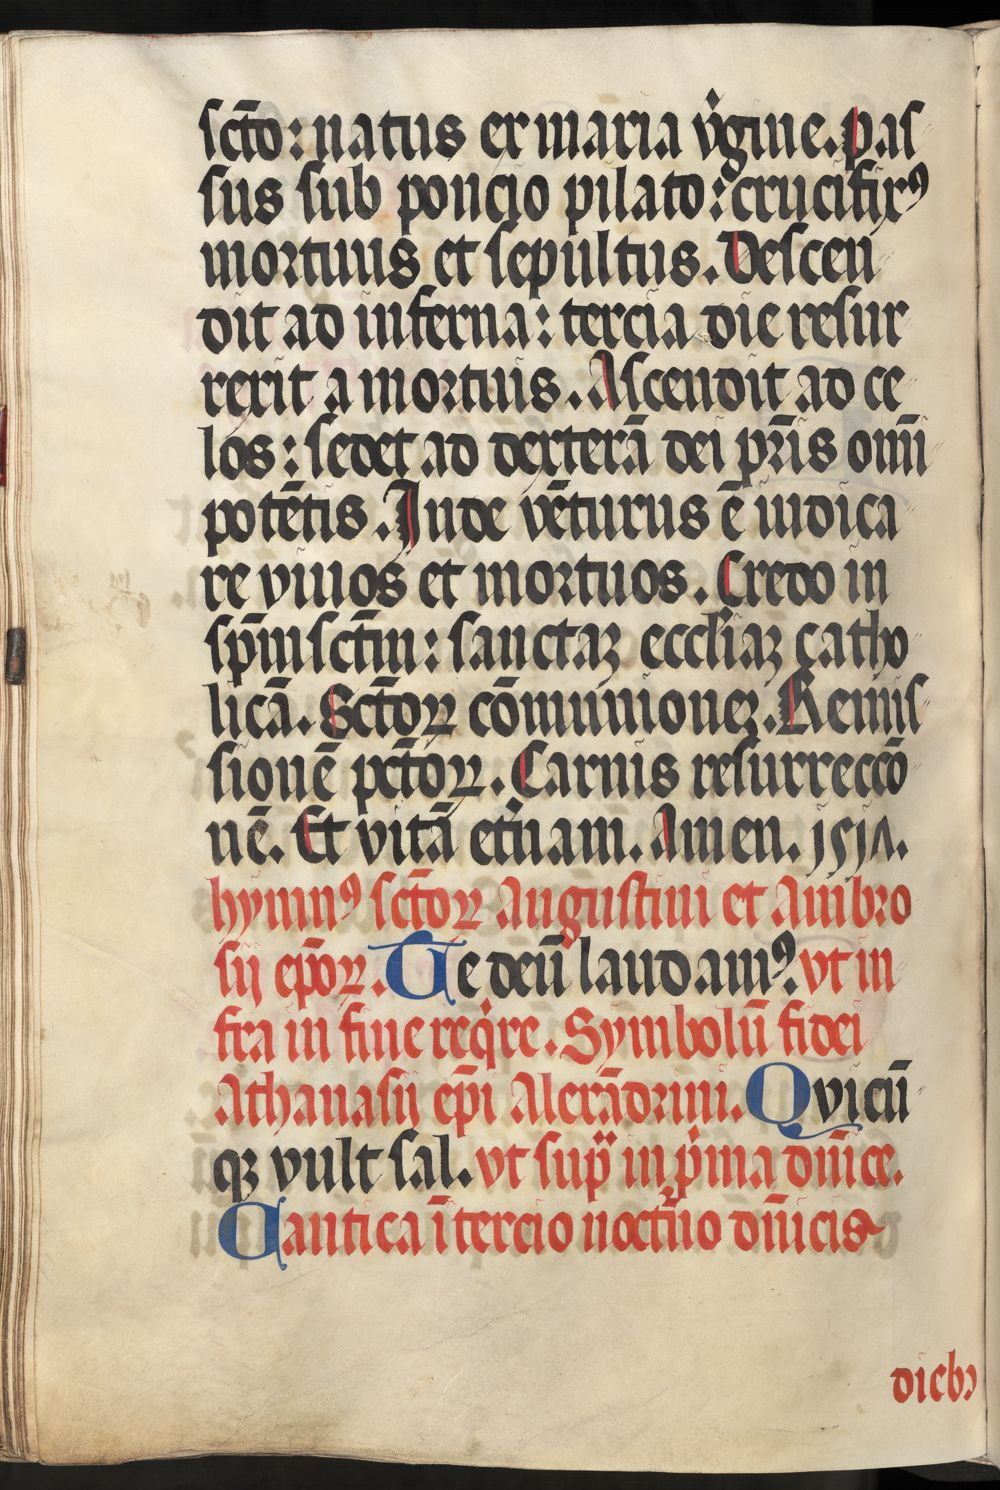 sct̄o: natus ex maria v̇gine. Pas
sus sub poncio pilato: crucifixꝰ
mortuus et sepultus. Descen
dit ad inferna: tercia die resur
rexit a mortuis. Ascendit ad ce
los: sedet ad dexterā dei pr̄is om̄i
potētis. Inde vēturus ē iudica
re viuos et mortuos. Credo in
sp̄m sct̄m: sanctaꝫ eccl̄iaꝫ catho
licā. Sct̄oꝝ cōmunioneꝫ. Remis
sionē pct̄oꝝ. Carnis resurreccō
nē. Et vitā et̓nam. Amen.
hymnꝰ sct̄oꝝ Augustini et Ambro
sij ep̄oꝝ. Te deū laudamꝰ. vt in
fra in fine req̇re. Symbolū fidei
Athanasij ep̄i Alexādrini. Qvicū
qꝫ vult sal. vt sup̈ in p̓ma dn̄ice.
Cantica ī tercio noct̓no dn̄icis
dieb